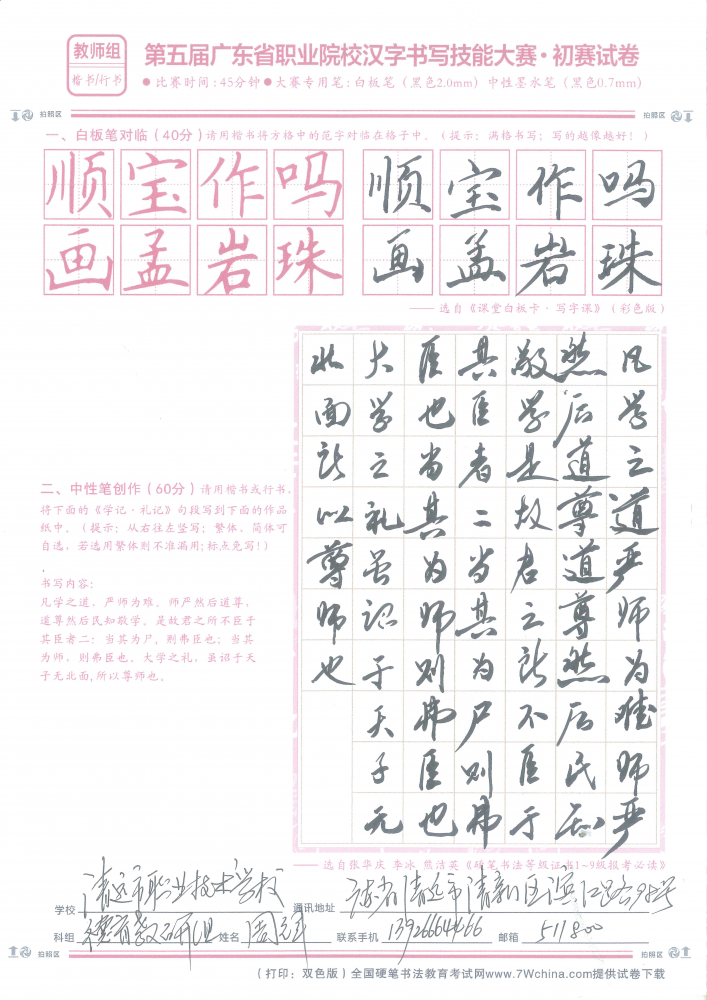 教师组
楷书/行书
第五届广东省职业院校汉字书写技能大赛·初赛试卷
●比赛时间:45分钟●大赛专用笔:白板笔(黑色2.0mm)中性墨水笔(黑色0.7mm)
拍照区 拍照区
一、白板笔对临(40分)请用楷书将方格中的范字对临在格子中。(提示:满格书写;写的越像越好!)
顺宝作吗 顺宝作吗
画孟岩珠 画孟岩珠
——选自《课堂白板卡·写字课》(彩色版)
二、中性笔创作(60分)请用楷书或行书,
将下面的《学记·礼记》句段写到下面的作品
纸中。(提示:从右往左竖写;繁体、简体可
自选,若选用繁体则不准漏用;标点免写!)
书写内容:
凡学之道,严师为难。师严然后道尊,
道尊然后民知敬学。是故君之所不臣于
其臣者二:当其为尸,则弗臣也;当其
为师,则弗臣也。大学之礼,虽诏于天
子无北面,所以尊师也。
凡学之道严师为难师严
然后道尊道尊然后民知
敬学是故君之所不臣于
其臣者二当其为尸则弗
臣也当其为师则弗臣也
大学之礼虽诏于天子无
北面所以尊师也
——选自张华庆 李冰 熊洁英《硬笔书法等级证书1~9级报考必读》
学校 清远市职业技术学校 通讯地址 广东省清远市清新区滨江路98号
科组 德育教研组 姓名 联系手机 13926664466 邮箱 511800
拍照区 拍照区
(打印:双色版)全国硬笔书法教育考试网www.7Wchina.com提供试卷下载